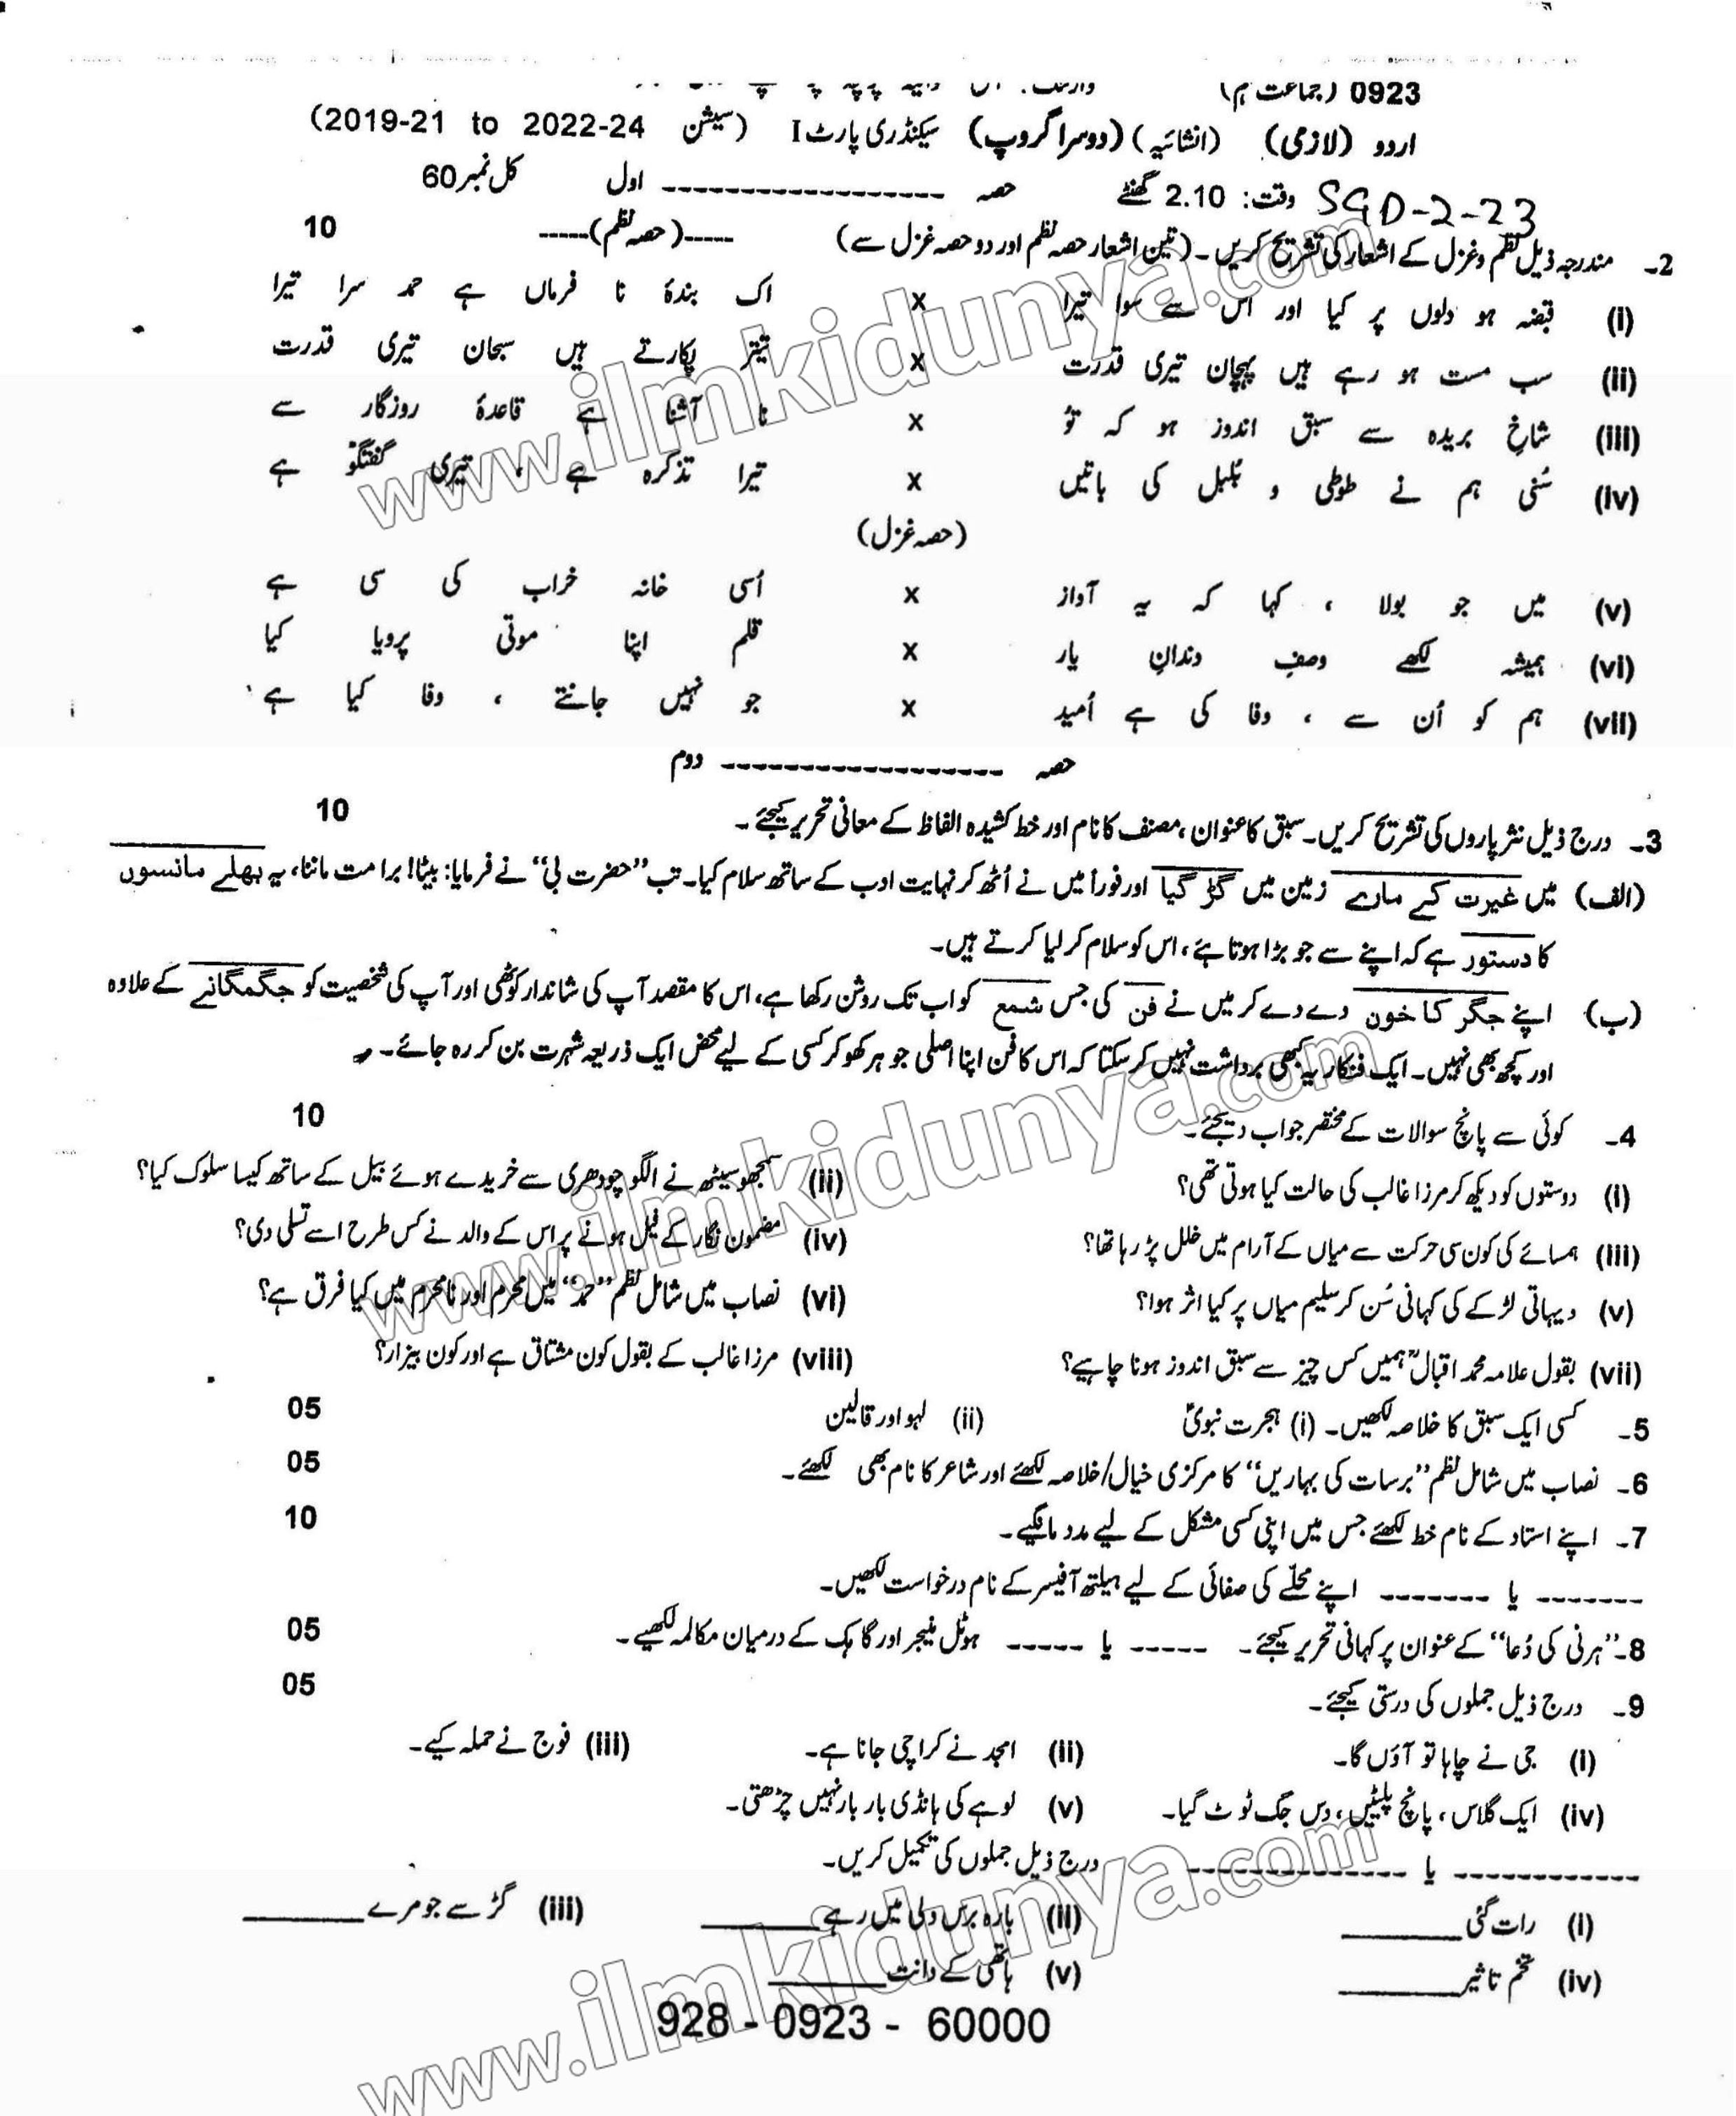 0923 (جماعت نہم)
اردو (لازمی) (انشائیہ) (دوسرا گروپ) سیکنڈری پارٹ I (سیشن 2019-21 to 2022-24)
SGD-2-23 وقت: 2.10 گھنٹے حصہ ------------------ اول کل نمبر 60
2۔ مندرجہ ذیل نظم و غزل کے اشعار کی تشریح کریں۔ (تین اشعار حصہ نظم اور دو حصہ غزل سے) -----(حصہ نظم)----- 10
(i) قبضہ ہو دلوں پر کیا اور اس سے سوا تیرا x اک بندۂ نا فرماں ہے حمد سرا تیرا
(ii) سب مست ہو رہے ہیں پہچان تیری قدرت x تیتر پکارتے ہیں سبحان تیری قدرت
(iii) شاخِ بریدہ سے سبق اندوز ہو کہ تُو x نا آشنا ہے قاعدۂ روزگار سے
(iv) سُنی ہم نے طوطی و بُلبل کی باتیں x تیرا تذکرہ ہے ، تیری گفتگو ہے
(حصہ غزل)
(v) میں جو بولا ، کہا کہ یہ آواز x اُسی خانہ خراب کی سی ہے
(vi) ہمیشہ لکھے وصفِ دندانِ یار x قلم اپنا موتی پرویا کیا
(vii) ہم کو اُن سے ، وفا کی ہے اُمید x جو نہیں جانتے ، وفا کیا ہے
حصہ ------------------ دوم
3۔ درج ذیل نثر پاروں کی تشریح کریں۔ سبق کا عنوان، مصنف کا نام اور خط کشیدہ الفاظ کے معانی تحریر کیجئے۔ 10
(الف) میں غیرت کے مارے زمین میں گڑ گیا اور فوراً میں نے اُٹھ کر نہایت ادب کے ساتھ سلام کیا۔ تب "حضرت بی" نے فرمایا: بیٹا! برا مت ماننا، یہ بھلے مانسوں
کا دستور ہے کہ اپنے سے جو بڑا ہوتا ہے، اس کو سلام کر لیا کرتے ہیں۔
(ب) اپنے جگر کا خون دے دے کر میں نے فن کی جس شمع کو اب تک روشن رکھا ہے، اس کا مقصد آپ کی شاندار کوٹھی اور آپ کی شخصیت کو جگمگانے کے علاوہ
اور کچھ بھی نہیں۔ ایک فنکار یہ کبھی برداشت نہیں کر سکتا کہ اس کا فن اپنا اصلی جوہر کھو کر کسی کے لیے محض ایک ذریعہ شہرت بن کر رہ جائے۔
4۔ کوئی سے پانچ سوالات کے مختصر جواب دیجئے۔ 10
(i) دوستوں کو دیکھ کر مرزا غالب کی حالت کیا ہوتی تھی؟ (ii) سمجھو سیٹھ نے الگو چودھری سے خریدے ہوئے بیل کے ساتھ کیسا سلوک کیا؟
(iii) ہمسائے کی کون سی حرکت سے میاں کے آرام میں خلل پڑ رہا تھا؟ (iv) مضمون نگار کے فیل ہونے پر اس کے والد نے کس طرح اسے تسلی دی؟
(v) دیہاتی لڑکے کی کہانی سُن کر سلیم میاں پر کیا اثر ہوا؟ (vi) نصاب میں شامل نظم "حمد" میں محرم اور نامحرم میں کیا فرق ہے؟
(vii) بقول علامہ محمد اقبالؒ ہمیں کس چیز سے سبق اندوز ہونا چاہیے؟ (viii) مرزا غالب کے بقول کون مشتاق ہے اور کون بیزار؟
5۔ کسی ایک سبق کا خلاصہ لکھیں۔ (i) ہجرت نبویؐ (ii) لہو اور قالین 05
6۔ نصاب میں شامل نظم "برسات کی بہاریں" کا مرکزی خیال/خلاصہ لکھئے اور شاعر کا نام بھی لکھئے۔ 05
7۔ اپنے استاد کے نام خط لکھئے جس میں اپنی کسی مشکل کے لیے مدد مانگیے۔ 10
------- یا ------- اپنے محلّے کی صفائی کے لیے ہیلتھ آفیسر کے نام درخواست لکھیں۔
8۔ "ہرنی کی دُعا" کے عنوان پر کہانی تحریر کیجئے۔ ----- یا ----- ہوٹل منیجر اور گاہک کے درمیان مکالمہ لکھیے۔ 05
9۔ درج ذیل جملوں کی درستی کیجئے۔ 05
(i) جی نے چاہا تو آؤں گا۔ (ii) امجد نے کراچی جانا ہے۔ (iii) فوج نے حملہ کیے۔
(iv) ایک گلاس، پانچ پلیٹیں، دس جگ ٹوٹ گیا۔ (v) لوہے کی ہانڈی بار بار نہیں چڑھتی۔
------------ یا ------------ درج ذیل جملوں کی تکمیل کریں۔
(i) رات گئی ________ (ii) بارہ برس دلی میں رہے ________ (iii) گڑ سے جو مرے ________
(iv) تخم تاثیر ________ (v) ہاتھی کے دانت ________
928 - 0923 - 60000
www.ilmkidunya.com
www.ilmkidunya.com
www.ilmkidunya.com